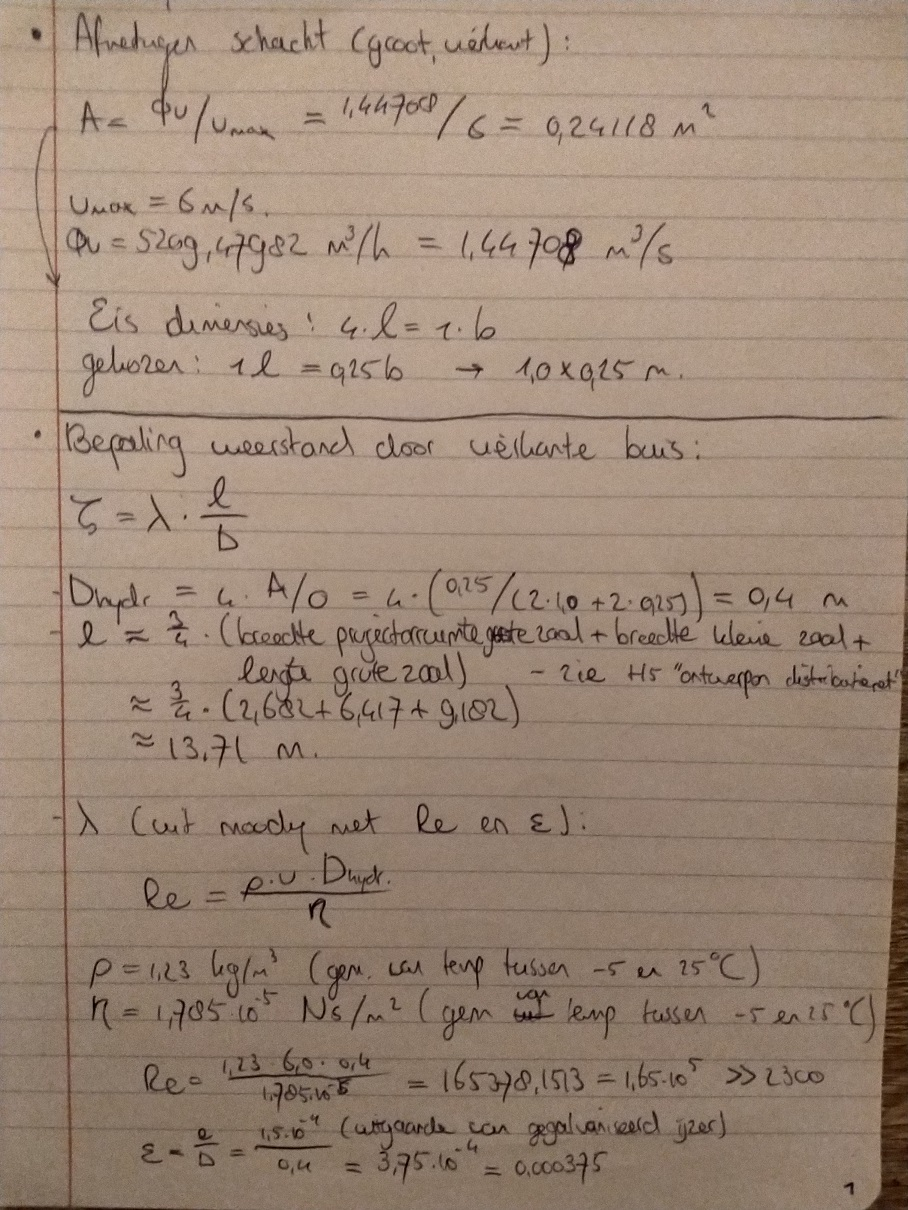 • Afmetingen schacht (groot, vierkant):
A = ϕv/umax = 1,44708/6 = 0,24118 m²
umax = 6 m/s.
ϕv = 5209,47982 m³/h = 1,44708 m³/s
Eis dimensies: 4·l = 1·b
gekozen: 1l = 0,25b → 1,0 x 0,25 m.
• Bepaling weerstand door vierkante buis:
ζ = λ · l/D
- Dhydr = 4 · A/O = 4·(0,25/(2·1,0 + 2·0,25)) = 0,4 m
- l ≈ 3/4 · (breedte projectorruimte grote zaal + breedte kleine zaal +
lengte grote zaal) - zie H5 "ontwerpen distributienet"
≈ 3/4 · (2,682 + 6,417 + 9,182)
≈ 13,71 m.
- λ (uit moody met Re en ε):
Re = ρ·u·Dhydr. / η
ρ = 1,23 kg/m³ (gem. van temp tussen -5 en 25°C)
η = 1,785·10⁻⁵ Ns/m² (gem van temp tussen -5 en 25°C)
Re = 1,23·6,0·0,4 / 1,785·10⁻⁵ = 165378,1513 = 1,65·10⁵ >> 2300
ε = e/D = 1,5·10⁻⁴/0,4 (uitgaande van gegalvaniseerd ijzer) = 3,75·10⁻⁴ = 0,000375
1